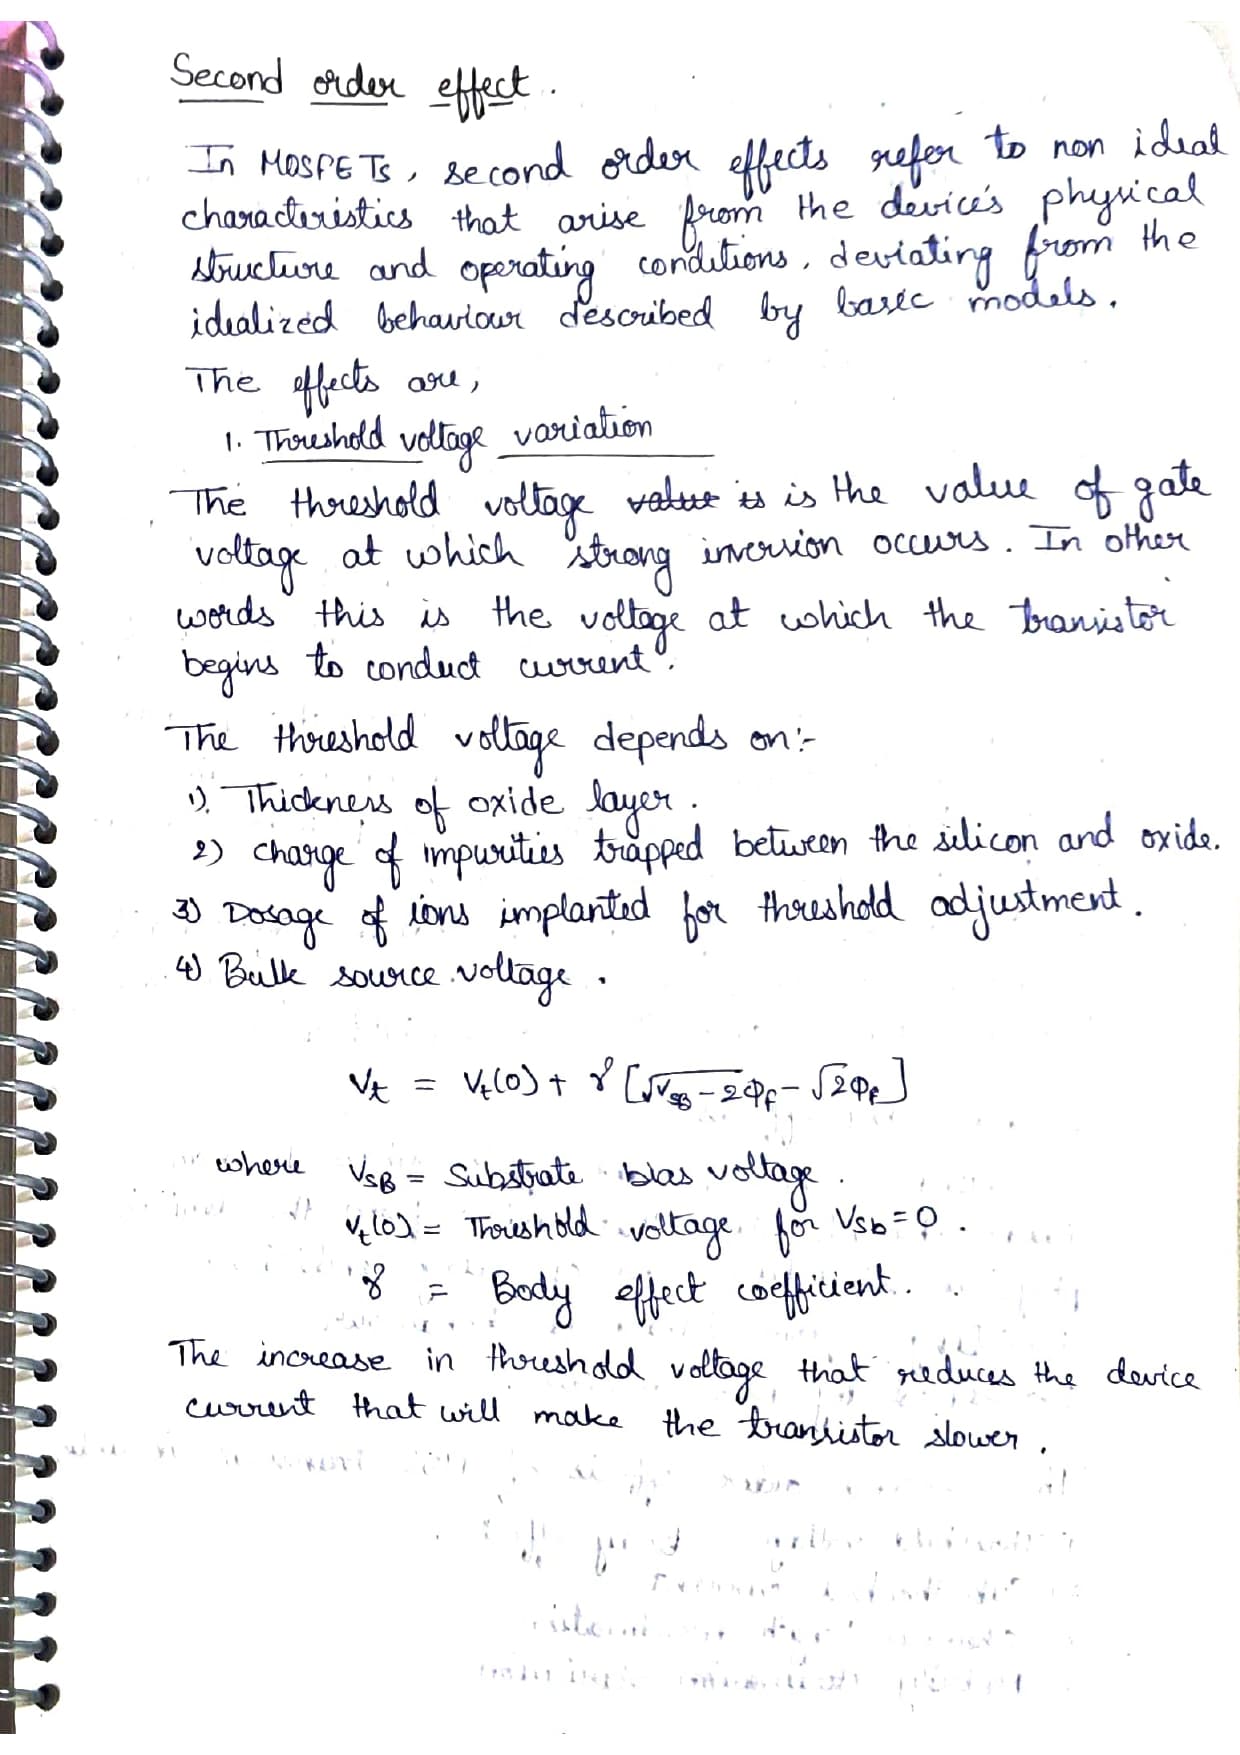 Second order effect.
In MOSFETs, second order effects refer to non ideal
characteristics that arise from the device's physical
structure and operating conditions, deviating from the
idealized behaviour described by basic models.
The effects are,
1. Threshold voltage variation
The threshold voltage value is is the value of gate
voltage at which strong inversion occurs. In other
words this is the voltage at which the transistor
begins to conduct current.
The threshold voltage depends on:-
1). Thickness of oxide layer.
2) charge of impurities trapped between the silicon and oxide.
3) Dosage of ions implanted for threshold adjustment.
4) Bulk source voltage.
Vt = Vt(0) + γ [√VSB - 2φf - √2φf]
where VSB = Substrate bias voltage.
Vt(0) = Threshold voltage for Vsb = 0.
γ = Body effect coefficient.
The increase in threshold voltage that reduces the device
current that will make the transistor slower.